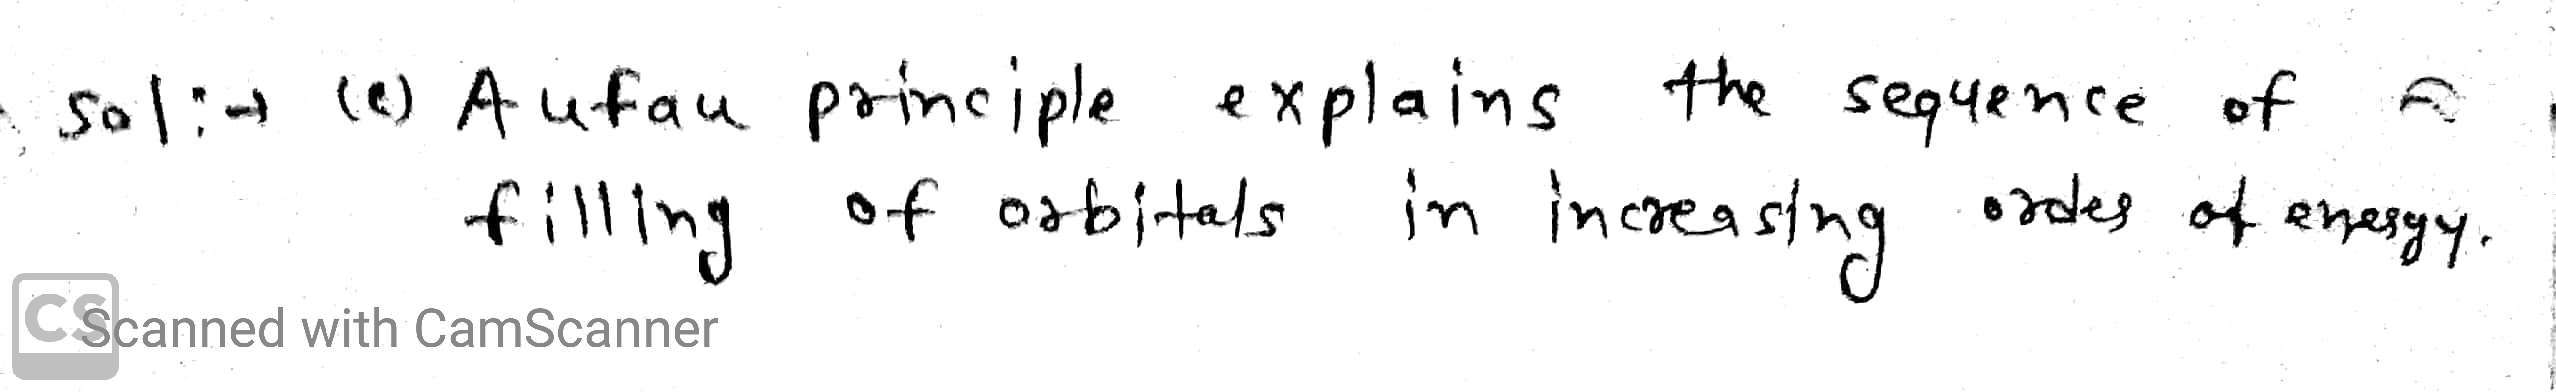 Sol:→ (c) Aufau principle explains the sequence of
filling of orbitals in increasing order of energy.
CS Scanned with CamScanner